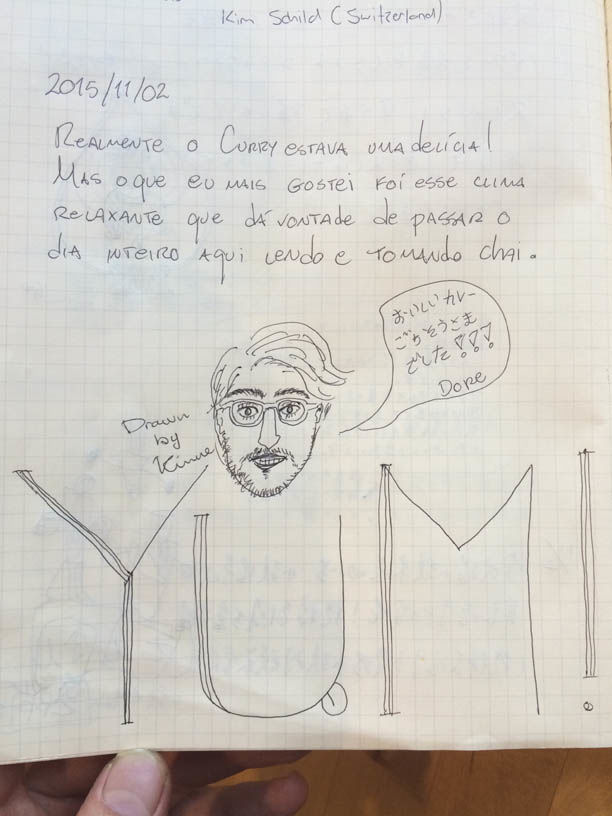 Kim Schild (Switzerland)
2015/11/02
REALMENTE O CURRY ESTAVA UMA delícia!
MAS O QUE EU MAIS GOSTEI FOI ESSE CLIMA
RELAXANTE QUE DÁ VONTADE de PASSAR O
DIA INTEIRO AQUI LENDO E TOMANDO CHAI.
おいしいカレー
ごちそうさま
でした!!!
Dore
Drawn
by
Kinue
YUM!